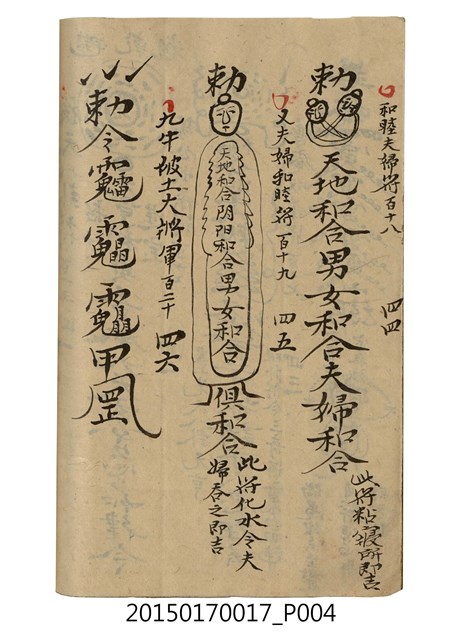 和睦夫婦符百十八 四四
勅
天地和合男女和合夫婦和合
此符粘寢所即吉
又夫婦和睦符百十九 四五
勅
天地和合阴阳和合男女和合
俱和合
此符化水令夫
婦吞之即吉
九牛破土大將軍百二十 四六
勅令
甲罡
20150170017_P004